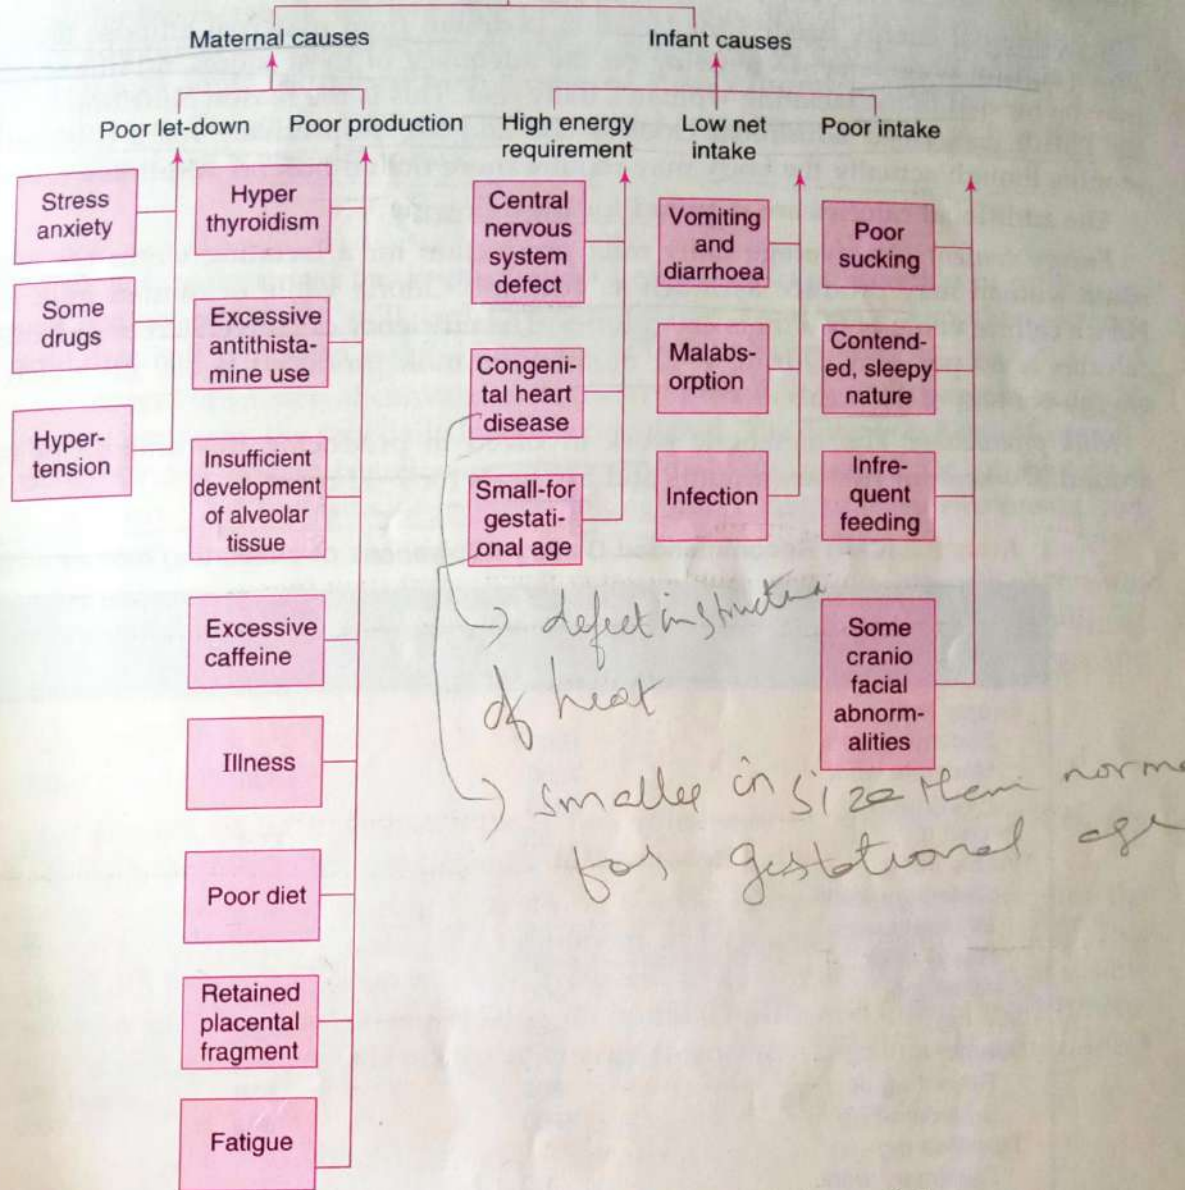 Maternal causes
Infant causes
Poor let-down
Poor production
High energy
requirement
Low net
intake
Poor intake
Stress
anxiety
Some
drugs
Hyper-
tension
Hyper
thyroidism
Excessive
antithista-
mine use
Insufficient
development
of alveolar
tissue
Excessive
caffeine
Illness
Poor diet
Retained
placental
fragment
Fatigue
Central
nervous
system
defect
Congeni-
tal heart
disease
Small-for
gestati-
onal age
Vomiting
and
diarrhoea
Malabs-
orption
Infection
Poor
sucking
Contend-
ed, sleepy
nature
Infre-
quent
feeding
Some
cranio
facial
abnorm-
alities
defect in
of heat
smaller in size
for gestational age